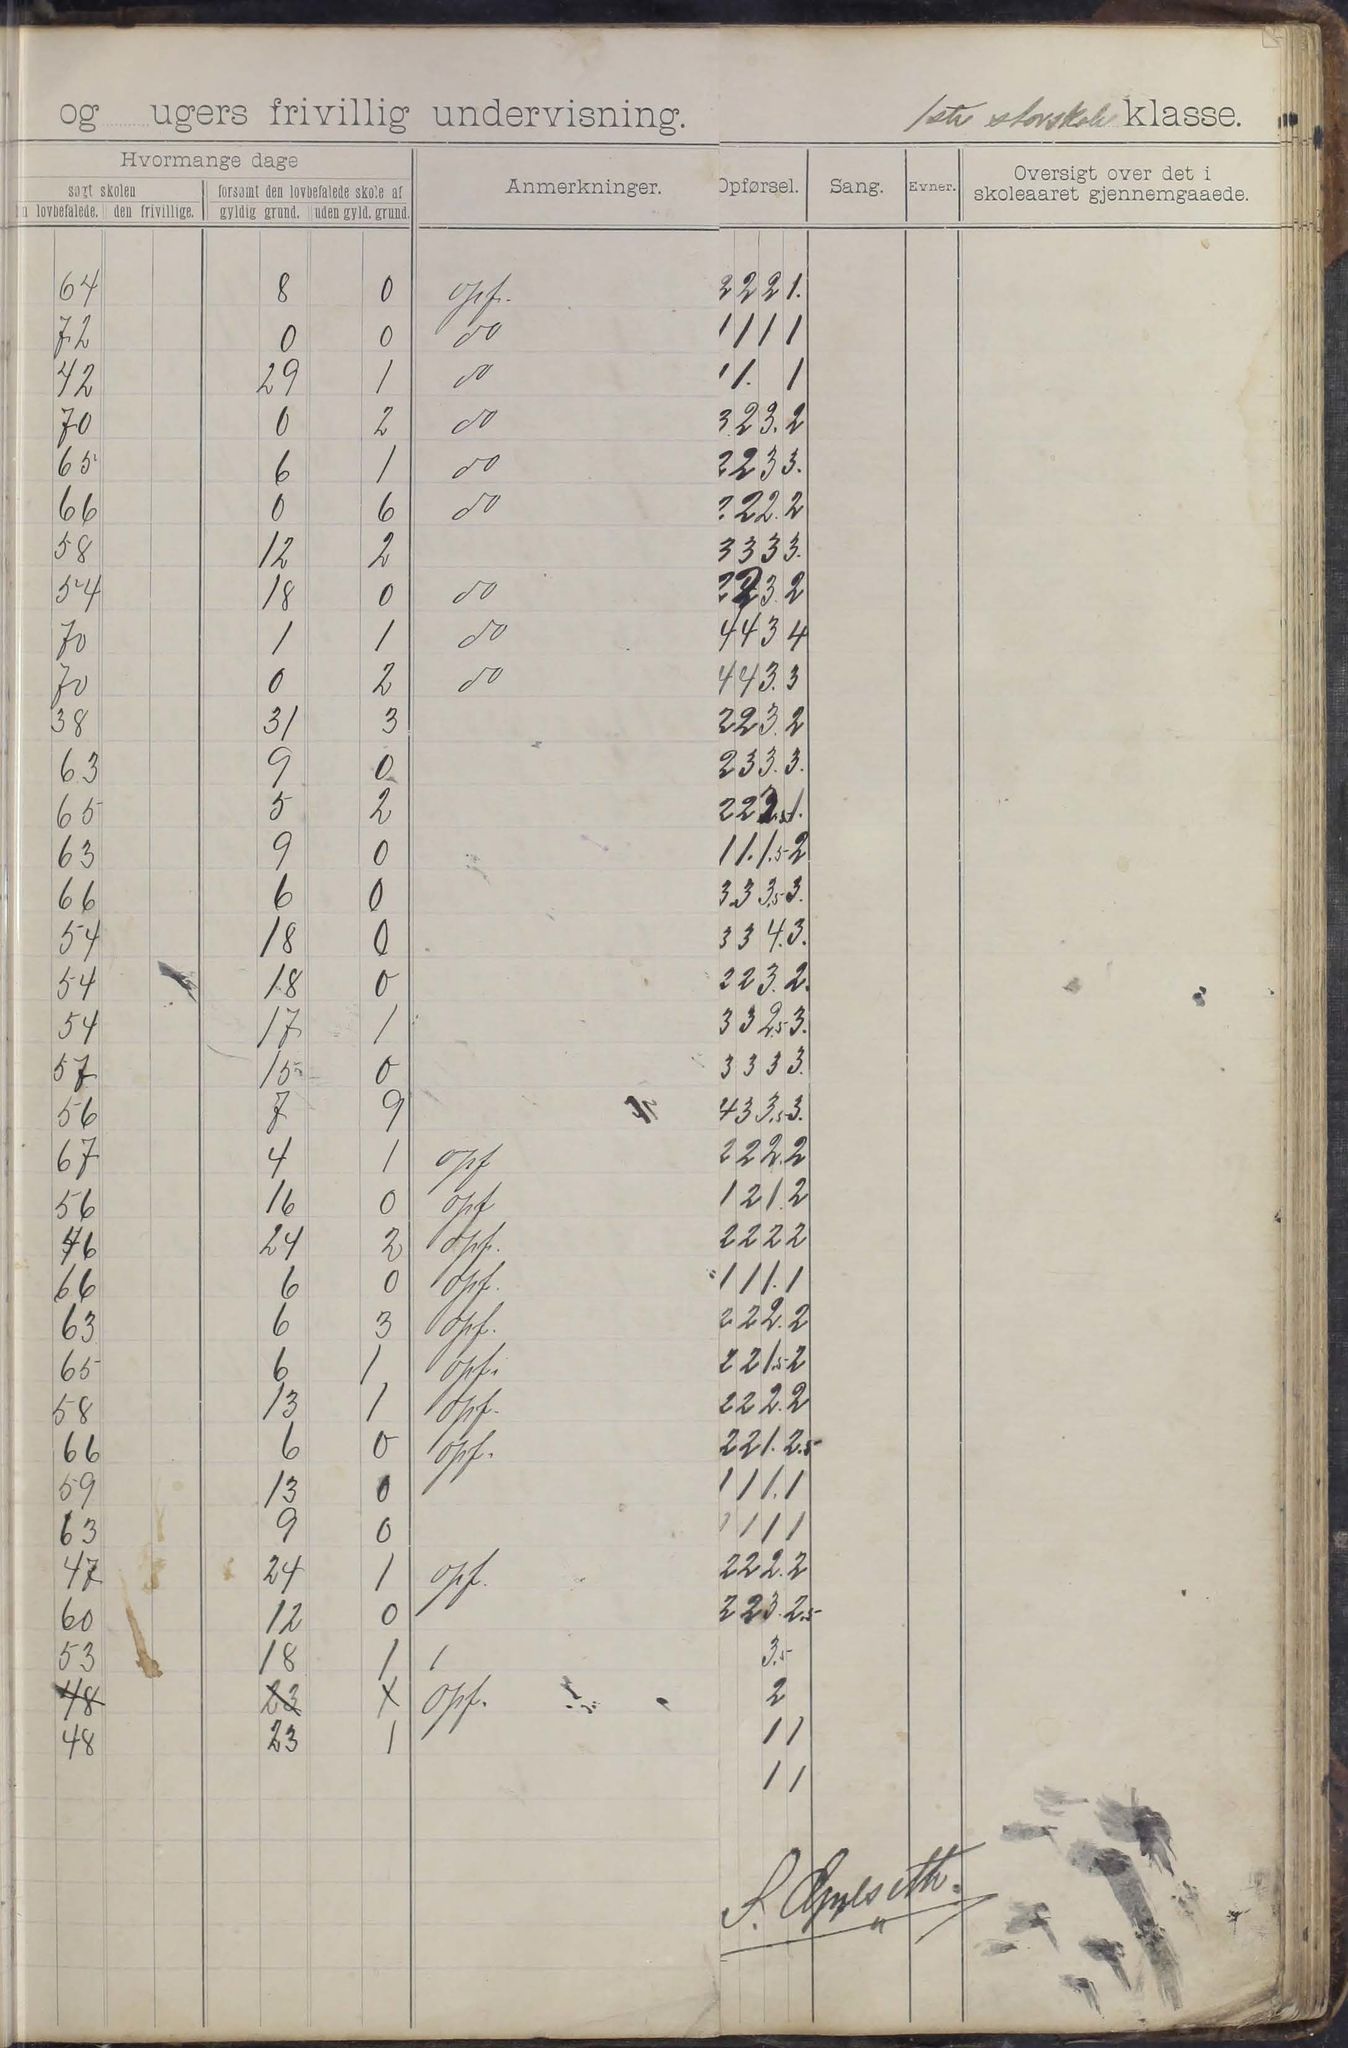 og ........ ugers frivillig undervisning. 1ste storskole klasse.
Hvormange dage
søgt skolen forsømt den lovbefalede skole af Anmerkninger. Opførsel. Sang. Evner. Oversigt over det i
lovbefalede. den frivillige. gyldig grund. uden gyld. grund. skoleaaret gjennemgaaede.
64 8 0 opf. 2 2 2 1.
72 0 0 do 1 1 1 1
42 29 1 do 1 1. 1
70 0 2 do 3 2 3. 2
65 6 1 do 2 2 3 3.
66 0 6 do 2 2 2. 2
58 12 2 3 3 3 3.
54 18 0 do 2 2 3. 2
70 1 1 do 4 4 3 4
70 0 2 do 4 4 3. 3
38 31 3 2 2 3. 2
63 9 0 2 3 3. 3.
65 5 2 2 2 2.5 1.
63 9 0 1 1. 1.5 2
66 6 0 3. 3 3.5 3.
54 18 0 3 3 4. 3.
54 18 0 2 2 3. 2.
54 17 1 3 3 2.5 3.
57 15 0 3 3 3 3.
56 7 9 4 3 3.5 3.
67 4 1 opf 2 2 2. 2
56 16 0 opf 1 2 1. 2
46 24 2 opf. 2 2 2 2
66 6 0 opf. 1 1 1. 1
63 6 3 opf. 2 2 2. 2
65 6 1 opf. 2 2 1.5 2
58 13 1 opf. 2 2 2. 2
66 6 0 opf. 2 2 1. 2.5
59 13 0 1 1 1. 1
63 9 0 1 1 1 1
47 24 1 opf. 2 2 2. 2
60 12 0 2 2 3. 2.5
53 18 1 3.5
48 23 1 opf. 2
48 23 1 1 1
1 1